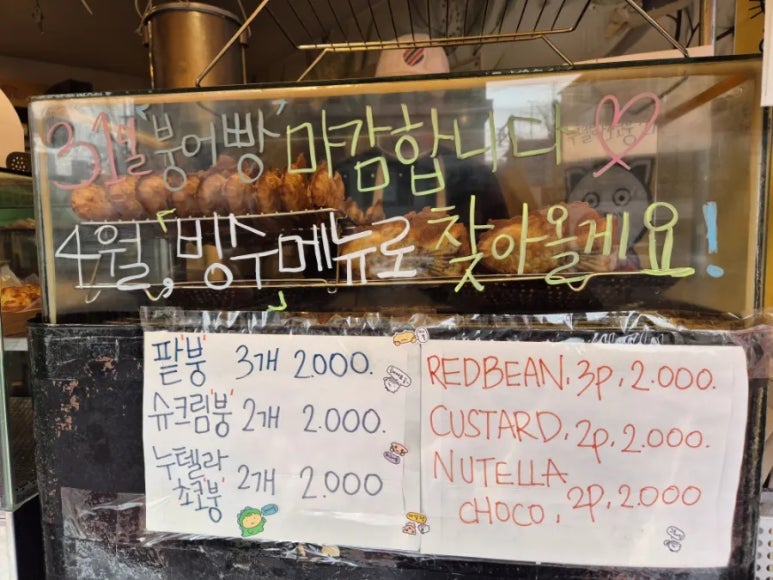 3월 '붕어빵' 마감합니다
4월, '빙수메뉴'로 찾아올게요!
팥'붕' 3개 2.000.
슈크림'붕' 2개 2.000.
누텔라
쵸코'붕' 2개 2.000
REDBEAN. 3p. 2.000.
CUSTARD. 2p. 2.000.
NUTELLA
CHOCO. 2p. 2.000